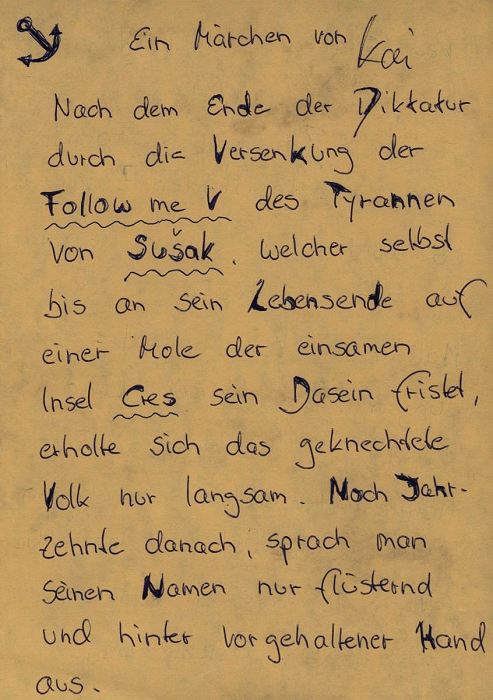 Ein Märchen von Kai
Nach dem Ende der Diktatur
durch die Versenkung der
Follow me V des Tyrannen
von Sušak, welcher selbst
bis an sein Lebensende auf
einer Mole der einsamen
Insel Cres sein Dasein fristet,
erholte sich das geknechtete
Volk nur langsam. Noch Jahr-
zehnte danach, sprach man
seinen Namen nur flüsternd
und hinter vorgehaltener Hand
aus.